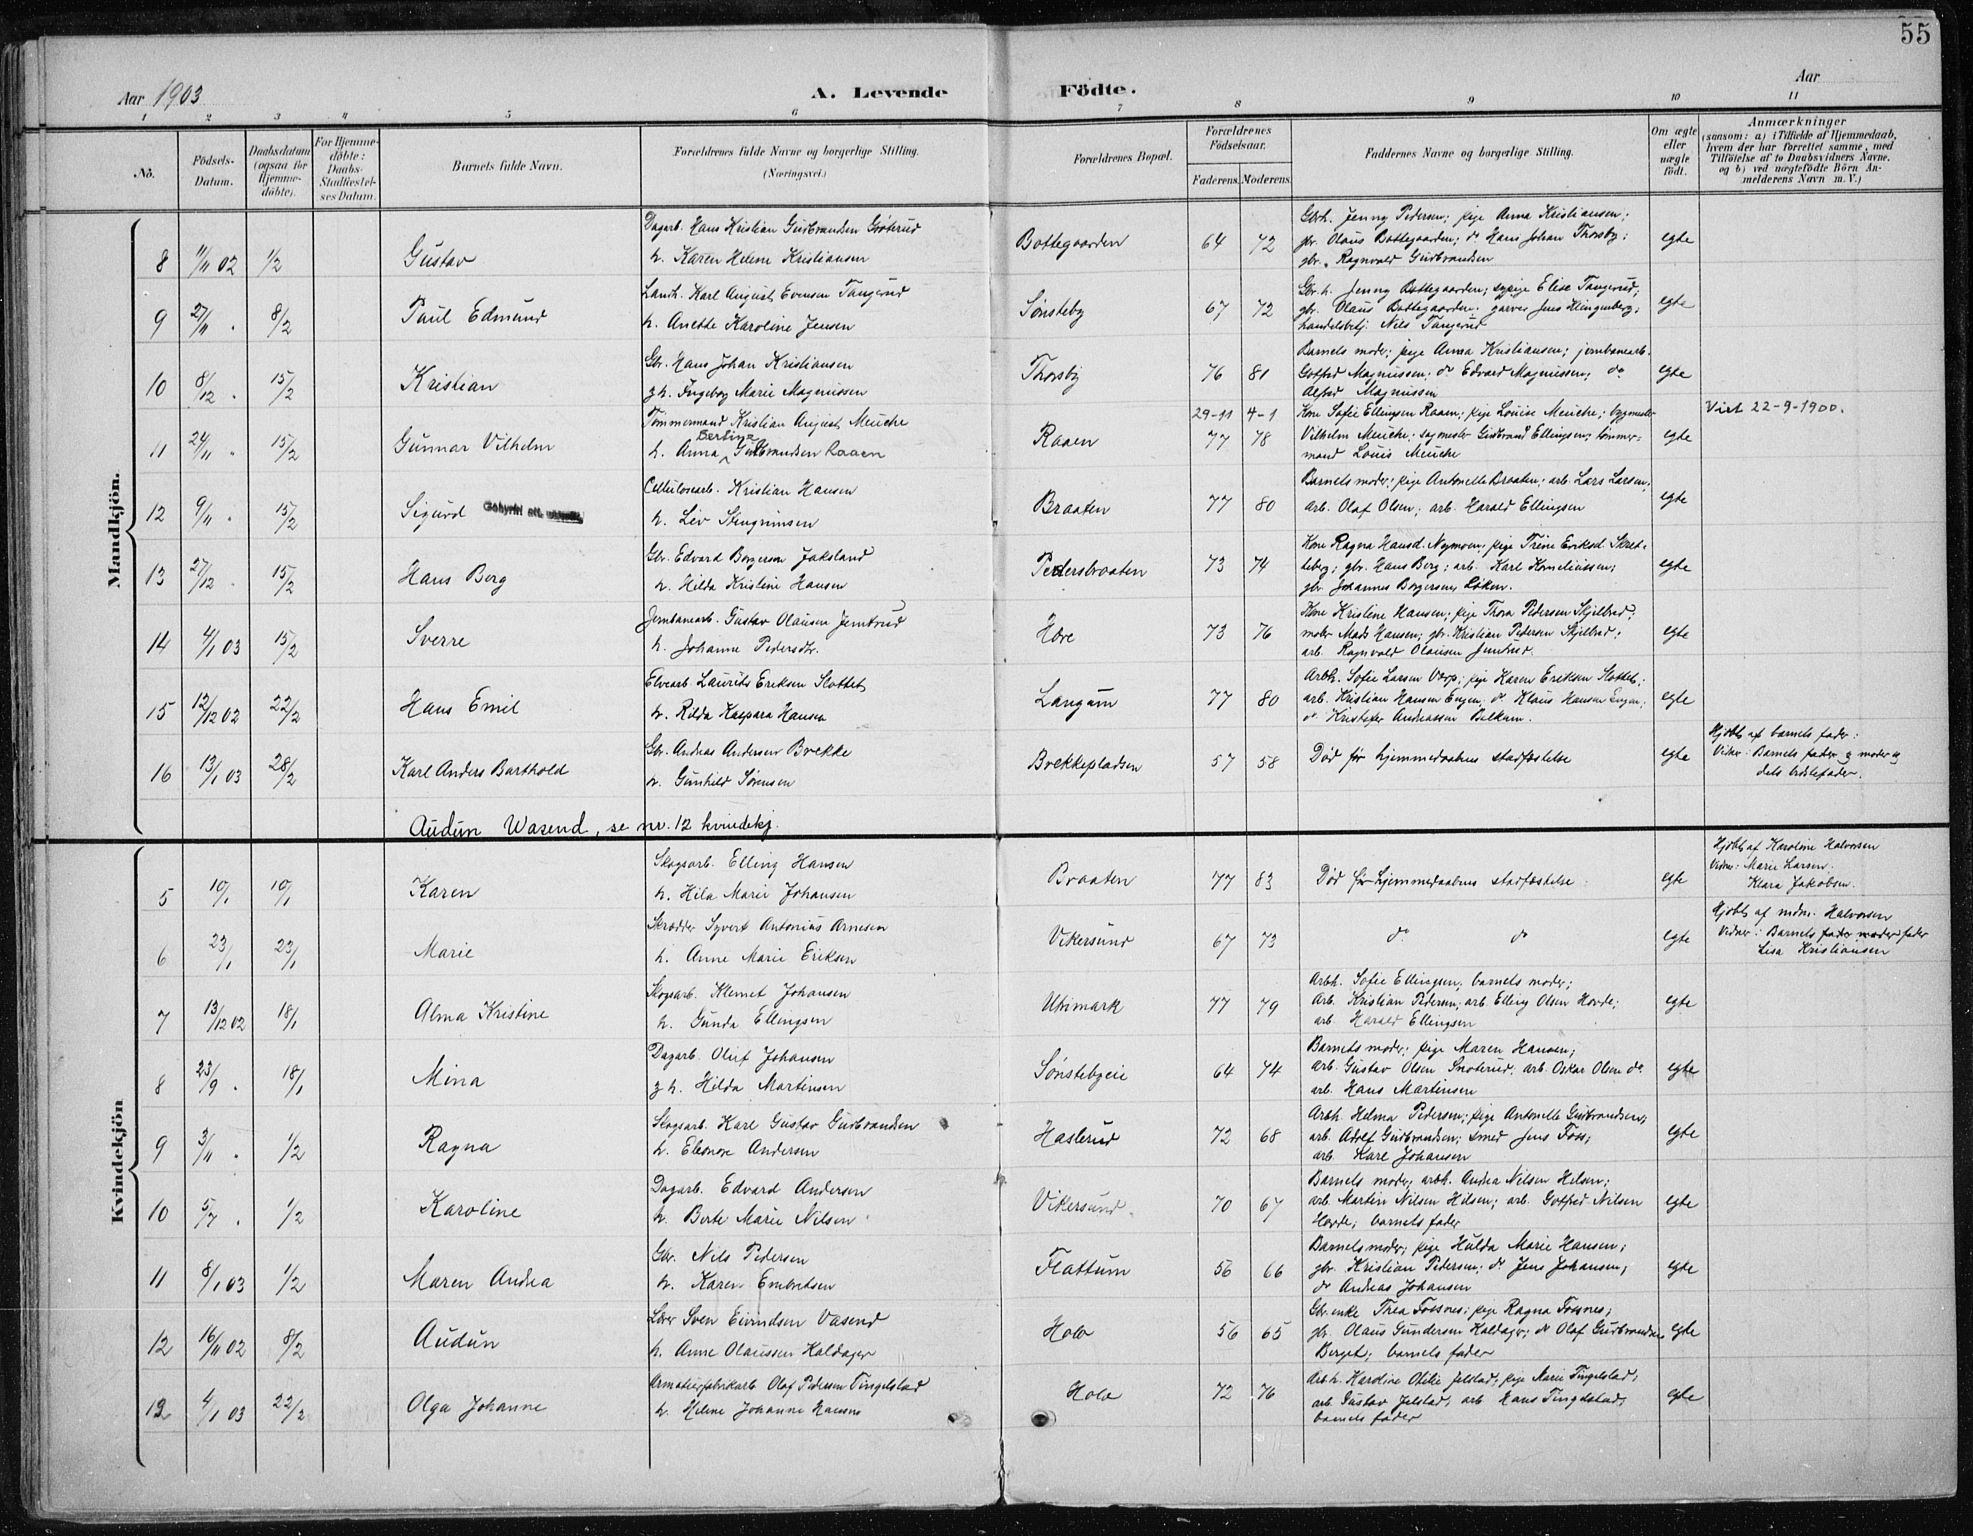 55
Aar 1903
A. Levende
Födte.
Aar
1 2 3 4 5 6 7 8 9 10 11
No.
Födsels-Datum.
Daabsdatum (ogsaa for Hjemme-döbte).
For Hjemme-döbte: Daabs-Stadfæstel-ses Datum.
Barnets fulde Navn.
Forældrenes fulde Navne og borgerlige Stilling.
(Næringsvei.)
Forældrenes Bopæl.
Forældrenes Födselsaar.
Faderens. Moderens.
Faddernes Navne og borgerlige Stilling.
Om ægte eller uægte födt.
Anmærkninger
(saasom: a) i Tilfælde af Hjemmedaab,
hvem der har forrettet samme, med
Tilföielse af to Daabsvidners Navne,
og b) ved uægtefödte Börn An-
melderens Navn m. V.)
Mandkjön.
8 11/11 02 1/2 Gustav
Dagarb. Hans Kristian Gudbrandsen Groterud
h. Karen Helene Kristiansen
Bottegaarden 64 72
Gbrh. Jenny Pedersen; pige Anna Kristiansen;
gbr. Olaus Bottegaarden; do Hans Johan Thorsby;
gbr. Ragnvald Gudbrandsen
egte
9 27/11 " 8/2 Paul Edmund
Landh. Karl August Evensen Tangerud
h. Anette Karoline Jensen
Sønsteby 67 72
Gbr.h. Jenny Bottegaarden; sypige Elise Tangerud;
gbr. Olaus Bottegaarden; garver Jens Klingenberg;
handelsbetj. Nils Tangerud
egte
10 8/12 " 15/2 Kristian
Gbr. Hans Johan Kristiansen
g.h. Ingeborg Marie Magnussen
Thorsby 76 81
Barnets moder; pige Anna Kristiansen; jernbanearb.
Gotfred Magnussen; do Edvard Magnussen; do
Alfred Magnussen
egte
11 24/11 " 15/2 Gunnar Vilhelm
Tømmermand Kristian August Meuche
h. Anna Bertine Gudbrandsen Raaen
Raaen 29-11 77 4-1 78
Kone Sofie Ellingsen Raaen; pige Louise Meuche; bygmester
Vilhelm Meuche; sagmester Gudbrand Ellingsen; tømmer-
mand Louis Meuche
egte
Viet 22-9-1900.
12 9/11 " 15/2 Sigurd
Cellulosearb. Kristian Hansen
h. Liv Stengrimsen
Braaten 77 80
Barnets moder; pige Antonette Braaten; arb. Lars Larsen;
arb. Olaf Olsen; arb. Harald Ellingsen
egte
13 27/12 " 15/2 Hans Berg
Gbr. Edvard Borgersen Jaksland
h. Hilda Kristine Hansen
Pedersbraaten 73 74
Kone Ragna Hansd. Nymoen; pige Trine Eriksd. Skret-
teberg; gbr. Hans Berg; arb. Karl Korneliussen;
gbr. Johannes Borgersen, Løken.
egte
14 4/1 03 15/2 Sverre
Jernbanearb. Gustav Olausen Jemtrud
h. Johanne Pedersdtr.
Hære 73 76
Kone Kristene Hansen; pige Thora Pedersen Skjelbred;
møller Mads Hansen; gbr. Kristian Pedersen Skjelbred;
arb. Ragnvald Olausen Jemtrud.
egte
15 12/12 02 22/2 Hans Emil
Elvearb. Laurits Eriksen Slottet
h. Rilda Kaspara Hansen
Langum 77 80
Arbh. Sofie Larsen Varp; pige Karen Eriksen Slottet;
arb. Kristian Hansen Engen; do Klaus Hansen Engen;
do Kristofer Andreassen
egte
16 13/1 03 28/2 Karl Anders Barthold
Gbr. Andreas Andersen Brekke
h. Gunhild Sørensen
Brekkepladsen 57 58
Død før hjemmedaabens stadfæstelse
egte
Hjdbt. af barnets fader:
Vidner: Barnets fader og moder og
dets bedstefader.
Audun Wasend, se nr. 12 kvindekj.
Kvindekjön
5 10/1 10/1 Karen
Skogsarb. Elling Hansen
h. Hila Marie Johansen
Braaten 77 83
Død før hjemmedaabens stadfæstelse
egte
Hjdbt. af Karoline Halvorsen
Vidner: Marie Larsen.
Klara Jakobsen.
6 23/1 23/1 Marie
Skrædder Syvert Antonius Arnesen
h. Anne Marie Eriksen
Vikersund 67 73
do do
egte
Hjdbt. af mdm. Halvorsen
Vidner: Barnets fader
Lisa Kristiansen
7 13/12 02 18/1 Alma Kristine
Skogsarb. Klemet Johansen
h. Gunda Ellingsen
Utnmark 77 79
Arbh. Sofie Ellingsen; barnets moder;
Arb. Kristian Pedersen; arb. Elling Olsen Hovde;
arb. Harald Ellingsen
egte
8 23/9 " 18/1 Mina
Dagarb. Oluf Johansen
g.h. Hilda Martinsen
Sønstebyeie 64 74
Barnets moder; pige Maren Hansen;
arb. Gustav Olsen Snoterud; arb. Oskar Olsen do
arb. Hans Martinsen
egte
9 3/11 " 1/2 Ragna
Skogsarb. Karl Gustav Gudbrandsen
h. Eleonore Andersen
Haslerud 72 68
Arbh. Helma Pedersen; pige Antonette Gudbrandsen;
arb. Adolf Gudbrandsen; smed Jens Foss;
arb. Karl Johansen
egte
10 5/7 " 1/2 Karoline
Dagarb. Edvard Andersen
h. Berte Marie Nilsen
Vikersund 70 67
Barnets moder; arbh. Andrea Nilsen Hilsen;
arb. Martin Nilsen Hilsen; arb. Gotfred Nilsen
Hovde; barnets fader
egte
11 8/1 03 1/2 Maren Andrea
Gbr. Nils Pedersen
h. Karen Embretsen
Flattum 56 66
Barnets moder; pige Hulda Marie Hansen;
gbr. Kristian Pedersen; do Jens Johansen;
do Andreas Johansen
egte
12 16/11 02 8/2 Audun
Lærer Sven Eivindsen Vasend
h. Anne Olaussen Kaldager
Hole 56 65
Gbr.enke Thea Fossnes; pige Ragna Fossnes;
gbr. Olaus Gundersen Kaldager; do Olaf Gudbrandsen
Berget; barnets fader
egte
13 4/1 03 22/2 Olga Johanne
Armaturfabrikarb. Olaf Pedersen Tingelstad
h. Helene Johanne Hansen
Hole 72 76
Arb.h. Karoline Otilie Jelstad; pige Marie Tingelstad;
arb. Gustav Jelstad; arb. Hans Tingelstad;
barnets fader
egte